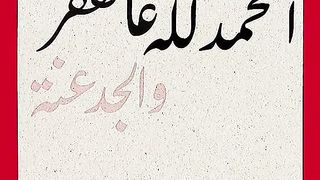 الحمد لله عا صفر
والجد عنة